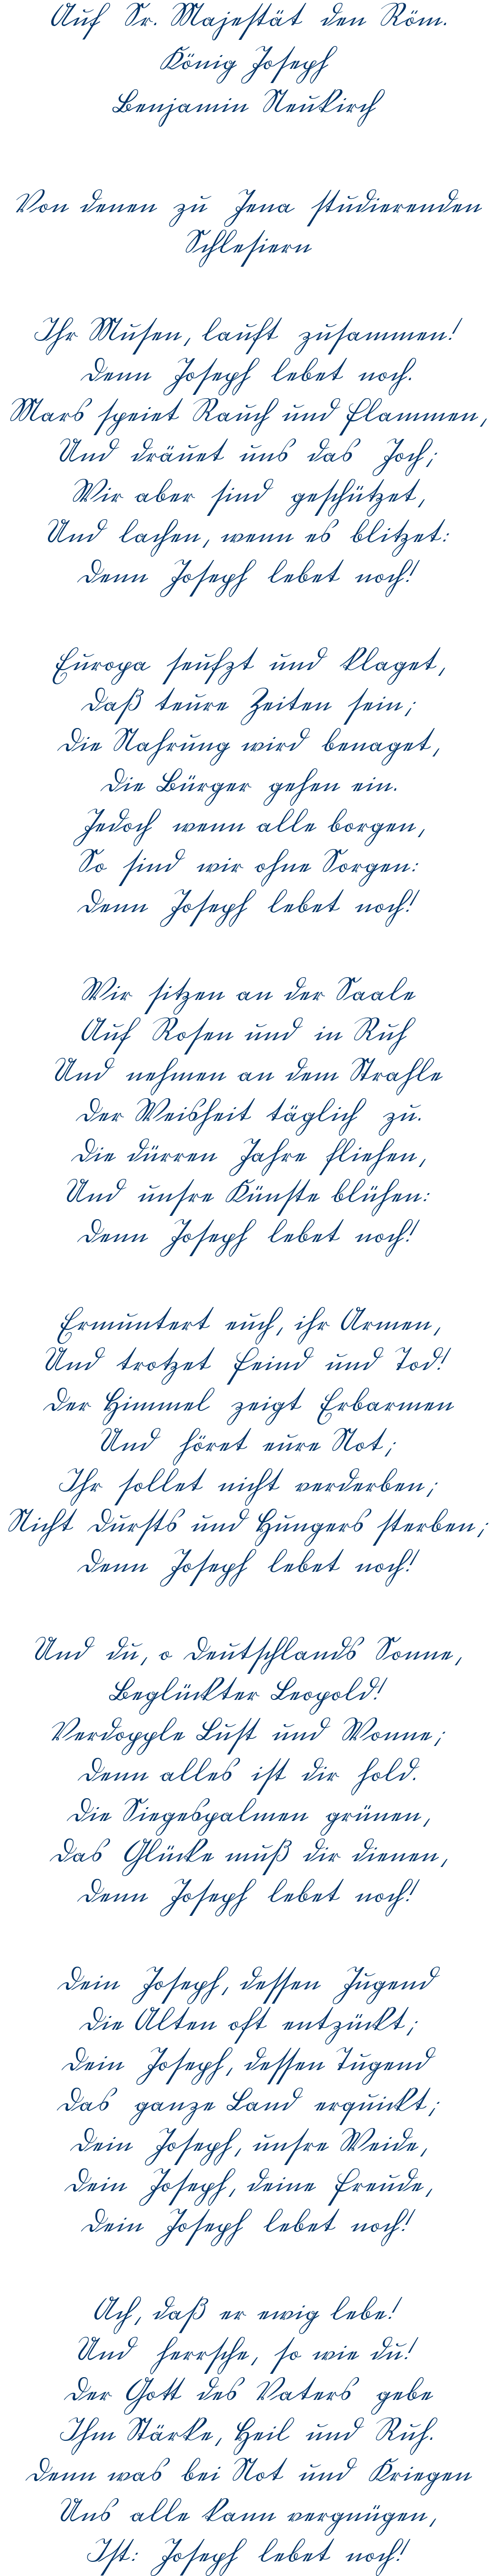 Auf Sr. Majestät den Röm.
König Joseph
Benjamin Neukirch
Von denen zu Jena studierenden
Schlesiern
Ihr Musen, lauft zusammen!
Denn Joseph lebet noch.
Mars speiet Rauch und Flammen,
Und dräuet uns das Joch;
Wir aber sind geschützet,
Und lachen, wenn es blitzet:
Denn Joseph lebet noch!
Europa seufzt und klaget,
Daß teure Zeiten sein;
Die Nahrung wird benaget,
Die Bürger gehen ein.
Jedoch wenn alle borgen,
So sind wir ohne Sorgen:
Denn Joseph lebet noch!
Wir sitzen an der Saale
Auf Rosen und in Ruh
Und nehmen an dem Strahle
Der Weisheit täglich zu.
Die dürren Jahre fliehen,
Und unsre Künste blühen:
Denn Joseph lebet noch!
Ermuntert euch, ihr Armen,
Und trotzet Feind und Tod!
Der Himmel zeigt Erbarmen
Und höret eure Not;
Ihr sollet nicht verderben;
Nicht Dursts und Hungers sterben;
Denn Joseph lebet noch!
Und du, o Deutschlands Sonne,
Beglückter Leopold!
Verdopple Lust und Wonne;
Denn alles ist dir hold.
Die Siegespalmen grünen,
Das Glücke muß dir dienen,
Denn Joseph lebet noch!
Dein Joseph, dessen Jugend
Die Alten oft entzückt;
Dein Joseph, dessen Tugend
Das ganze Land erquickt;
Dein Joseph, unsre Weide,
Dein Joseph, deine Freude,
Dein Joseph lebet noch!
Ach, daß er ewig lebe!
Und herrsche, so wie du!
Der Gott des Vaters gebe
Ihm Stärke, Heil und Ruh.
Denn was bei Not und Kriegen
Uns alle kann vergnügen,
Ist: Joseph lebet noch!